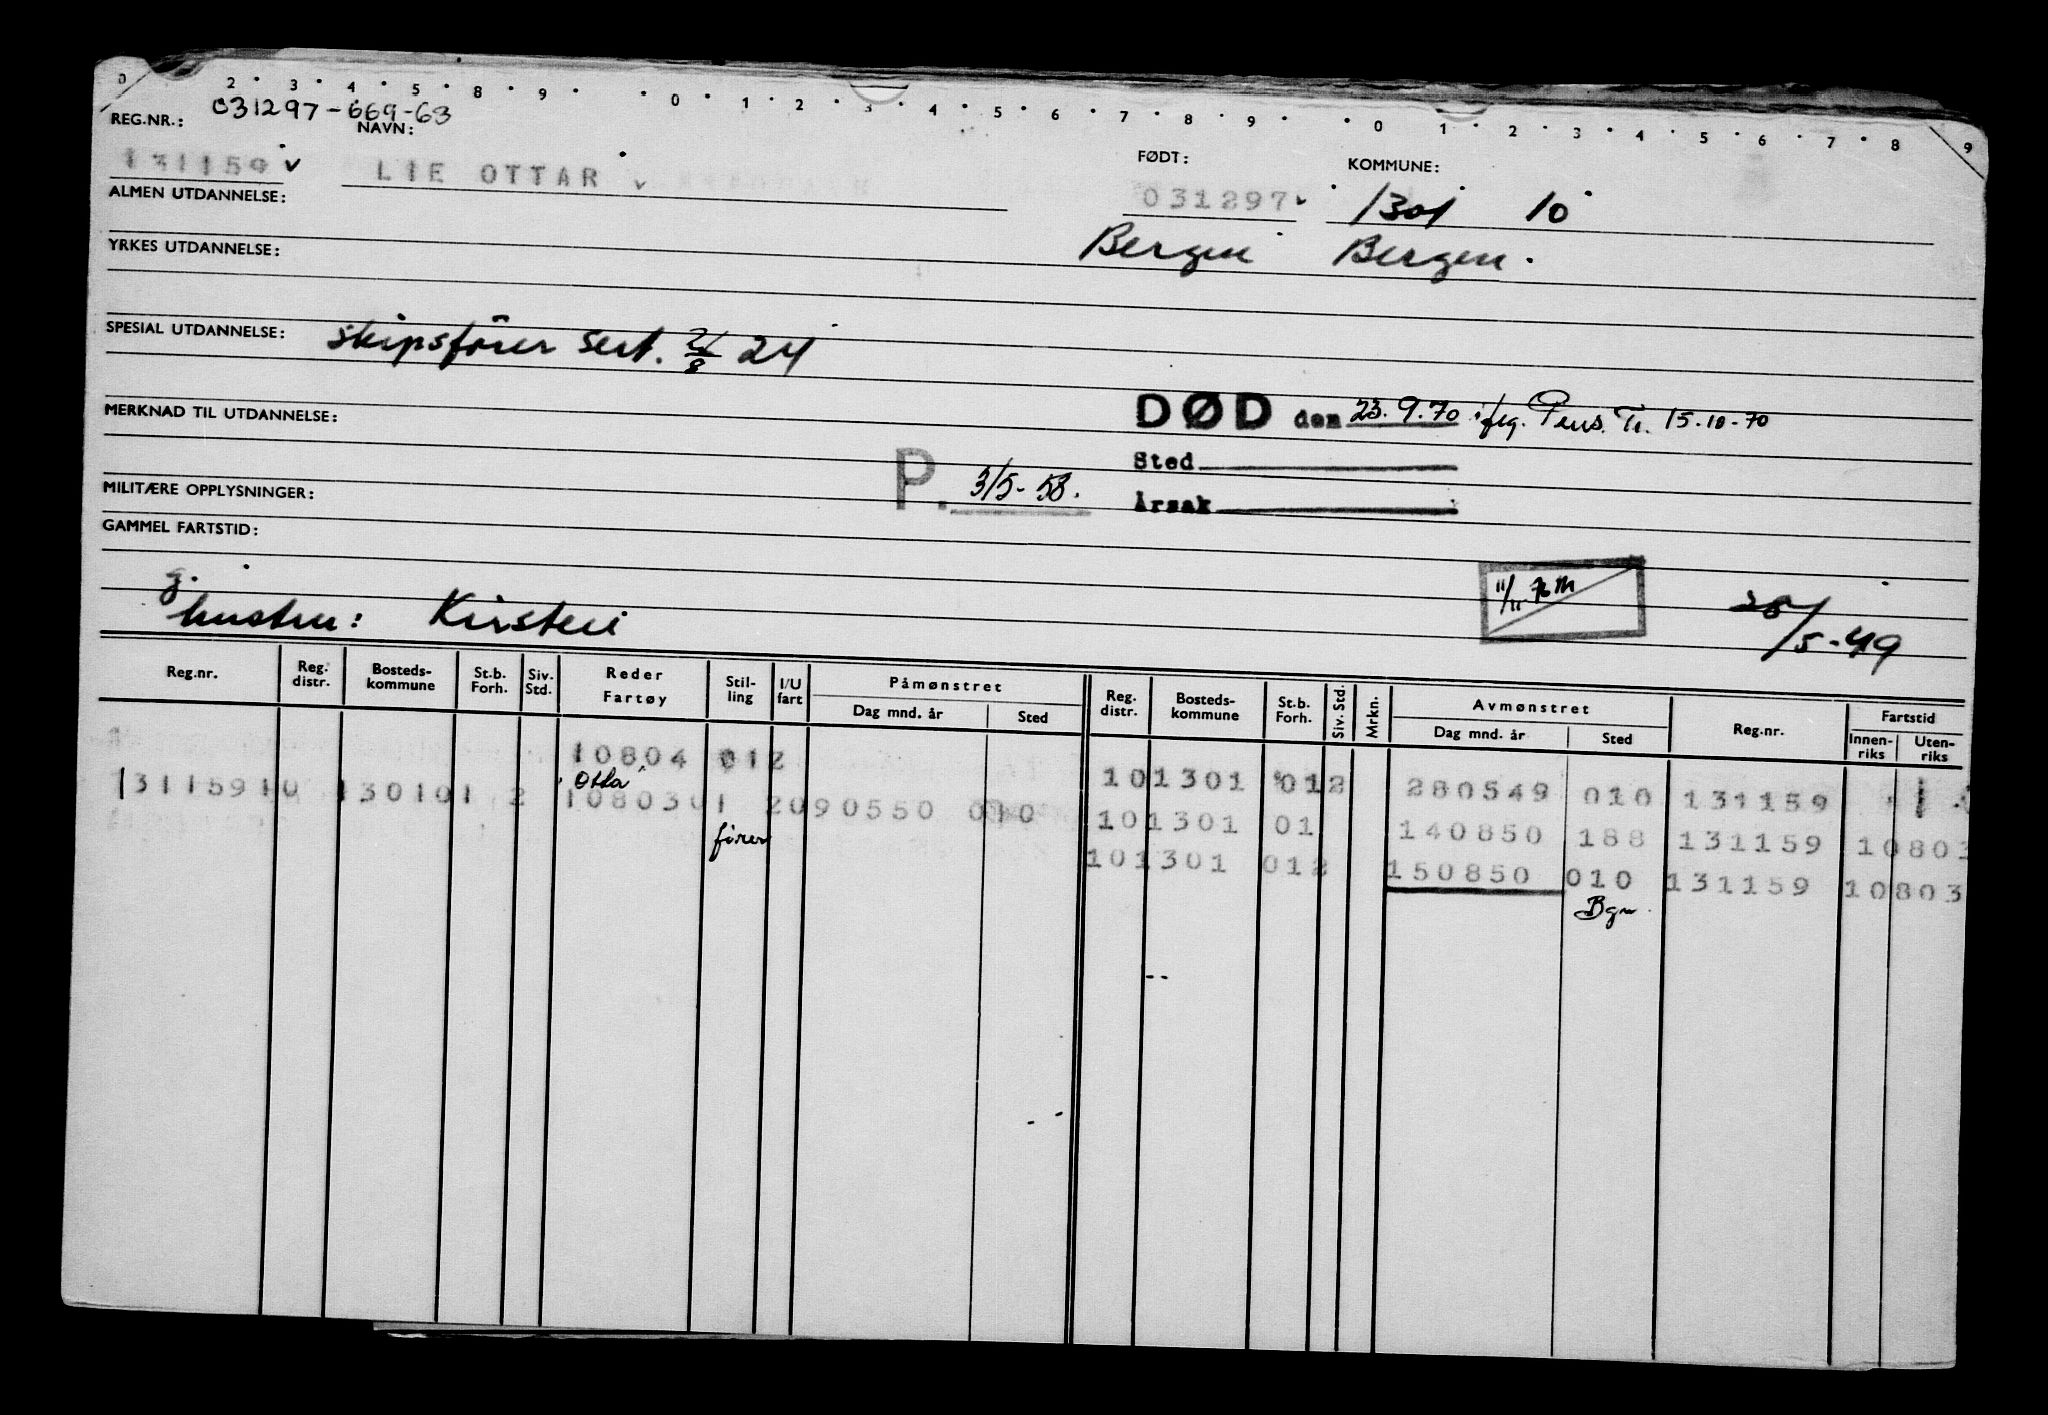 0 2 3 4 5 8 9 0 1 2 3 4 5 6 7 8 9 0 1 2 3 4 5 6 7 8 9
REG.NR.: 031297-669-63
NAVN: FØDT: KOMMUNE:
131159 LIE OTTAR 031297 1301 10
ALMEN UTDANNELSE:
Bergen Bergen.
YRKES UTDANNELSE:
SPESIAL UTDANNELSE: skipsfører sert. 2/8 24
MERKNAD TIL UTDANNELSE:
DØD den 23.9.70 iføg. Pens. Tr. 15-10-70
Sted
P. 3/5-58. Årsak
MILITÆRE OPPLYSNINGER:
GAMMEL FARTSTID:
g.
hustru: Kirsten
11/11
/5-49
Reg.nr. Reg. distr. Bosteds-kommune St.b. Forh. Siv. Std. Reder Fartøy Stil-ling I/U fart Påmønstret Dag mnd. år Sted Reg. distr. Bosteds-kommune St.b. Forh. Siv. Std. Mrkn. Avmønstret Dag mnd. år Sted Reg.nr. Fartstid Innen-riks Uten-riks
10804 012 101301 012 280549 010 131159
Otta
131159 10 1301 01 2 10803 01 2 090550 010 101301 01 140850 188 131159 10803
fører
101301 012 150850 010 131159 10803
Bgn